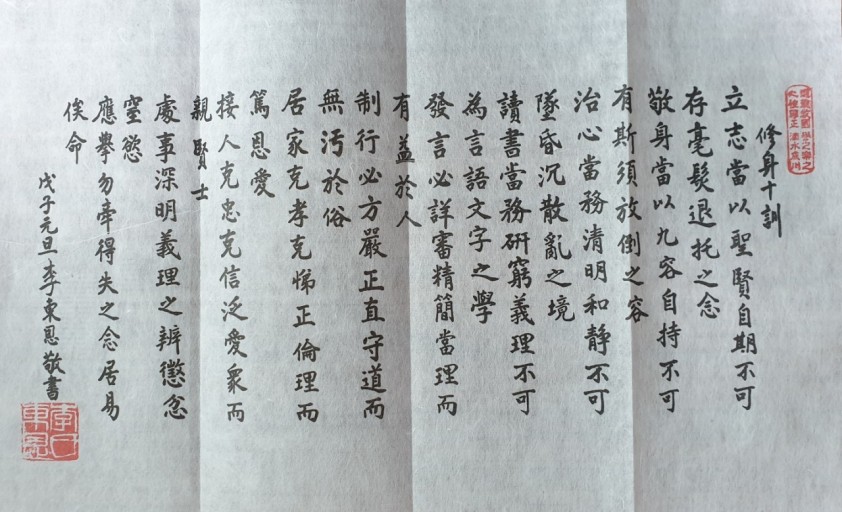 修身十訓
立志當以聖賢自期不可
存毫髮退托之念
敬身當以九容自持不可
有斯須放倒之容
治心當務清明和靜不可
墜昏沉散亂之境
讀書當務硏窮義理不可
為言語文字之學
發言必詳審精簡當理而
有益於人
制行必方嚴正直守道而
無汚於俗
居家克孝克悌正倫理而
篤恩愛
接人克忠克信泛愛衆而
親賢士
處事深明義理之辨懲忿
窒慾
應擧勿牽得失之念居易
俟命
戊子元旦李東恩敬書